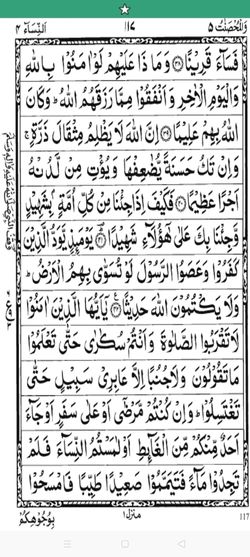 وَالْمُحْصَنٰتُ ٥ ١١٧ اَلنِّسَآء ٤
فَسَآءَ قَرِيْنًا ﴿۳۸﴾ وَمَا ذَا عَلَيْهِمْ لَوْ اٰمَنُوْا بِاللّٰهِ
وَالْيَوْمِ الْاٰخِرِ وَاَنْفَقُوْا مِمَّا رَزَقَهُمُ اللّٰهُ ؕ وَكَانَ
اللّٰهُ بِهِمْ عَلِيْمًا ﴿۳۹﴾ اِنَّ اللّٰهَ لَا يَظْلِمُ مِثْقَالَ ذَرَّةٍ ۚ
وَاِنْ تَكُ حَسَنَةً يُّضٰعِفْهَا وَيُؤْتِ مِنْ لَّدُنْهُ
اَجْرًا عَظِيْمًا ﴿۴۰﴾ فَكَيْفَ اِذَا جِئْنَا مِنْ كُلِّ اُمَّةٍۭ بِشَهِيْدٍ
وَّجِئْنَا بِكَ عَلٰى هٰٓؤُلَآءِ شَهِيْدًا ﴿۴۱﴾ يَوْمَئِذٍ يَّوَدُّ الَّذِيْنَ
كَفَرُوْا وَعَصَوُا الرَّسُوْلَ لَوْ تُسَوّٰى بِهِمُ الْاَرْضُ ؕ
وَلَا يَكْتُمُوْنَ اللّٰهَ حَدِيْثًا ﴿۴۲﴾ يٰۤاَيُّهَا الَّذِيْنَ اٰمَنُوْا
لَا تَقْرَبُوا الصَّلٰوةَ وَاَنْتُمْ سُكٰرٰى حَتّٰى تَعْلَمُوْا
مَا تَقُوْلُوْنَ وَلَا جُنُبًا اِلَّا عَابِرِيْ سَبِيْلٍ حَتّٰى
تَغْتَسِلُوْا ؕ وَاِنْ كُنْتُمْ مَّرْضٰۤى اَوْ عَلٰى سَفَرٍ اَوْ جَآءَ
اَحَدٌ مِّنْكُمْ مِّنَ الْغَآئِطِ اَوْ لٰمَسْتُمُ النِّسَآءَ فَلَمْ
تَجِدُوْا مَآءً فَتَيَمَّمُوْا صَعِيْدًا طَيِّبًا فَامْسَحُوْا
بِوُجُوْهِكُمْ
منزل ١
117